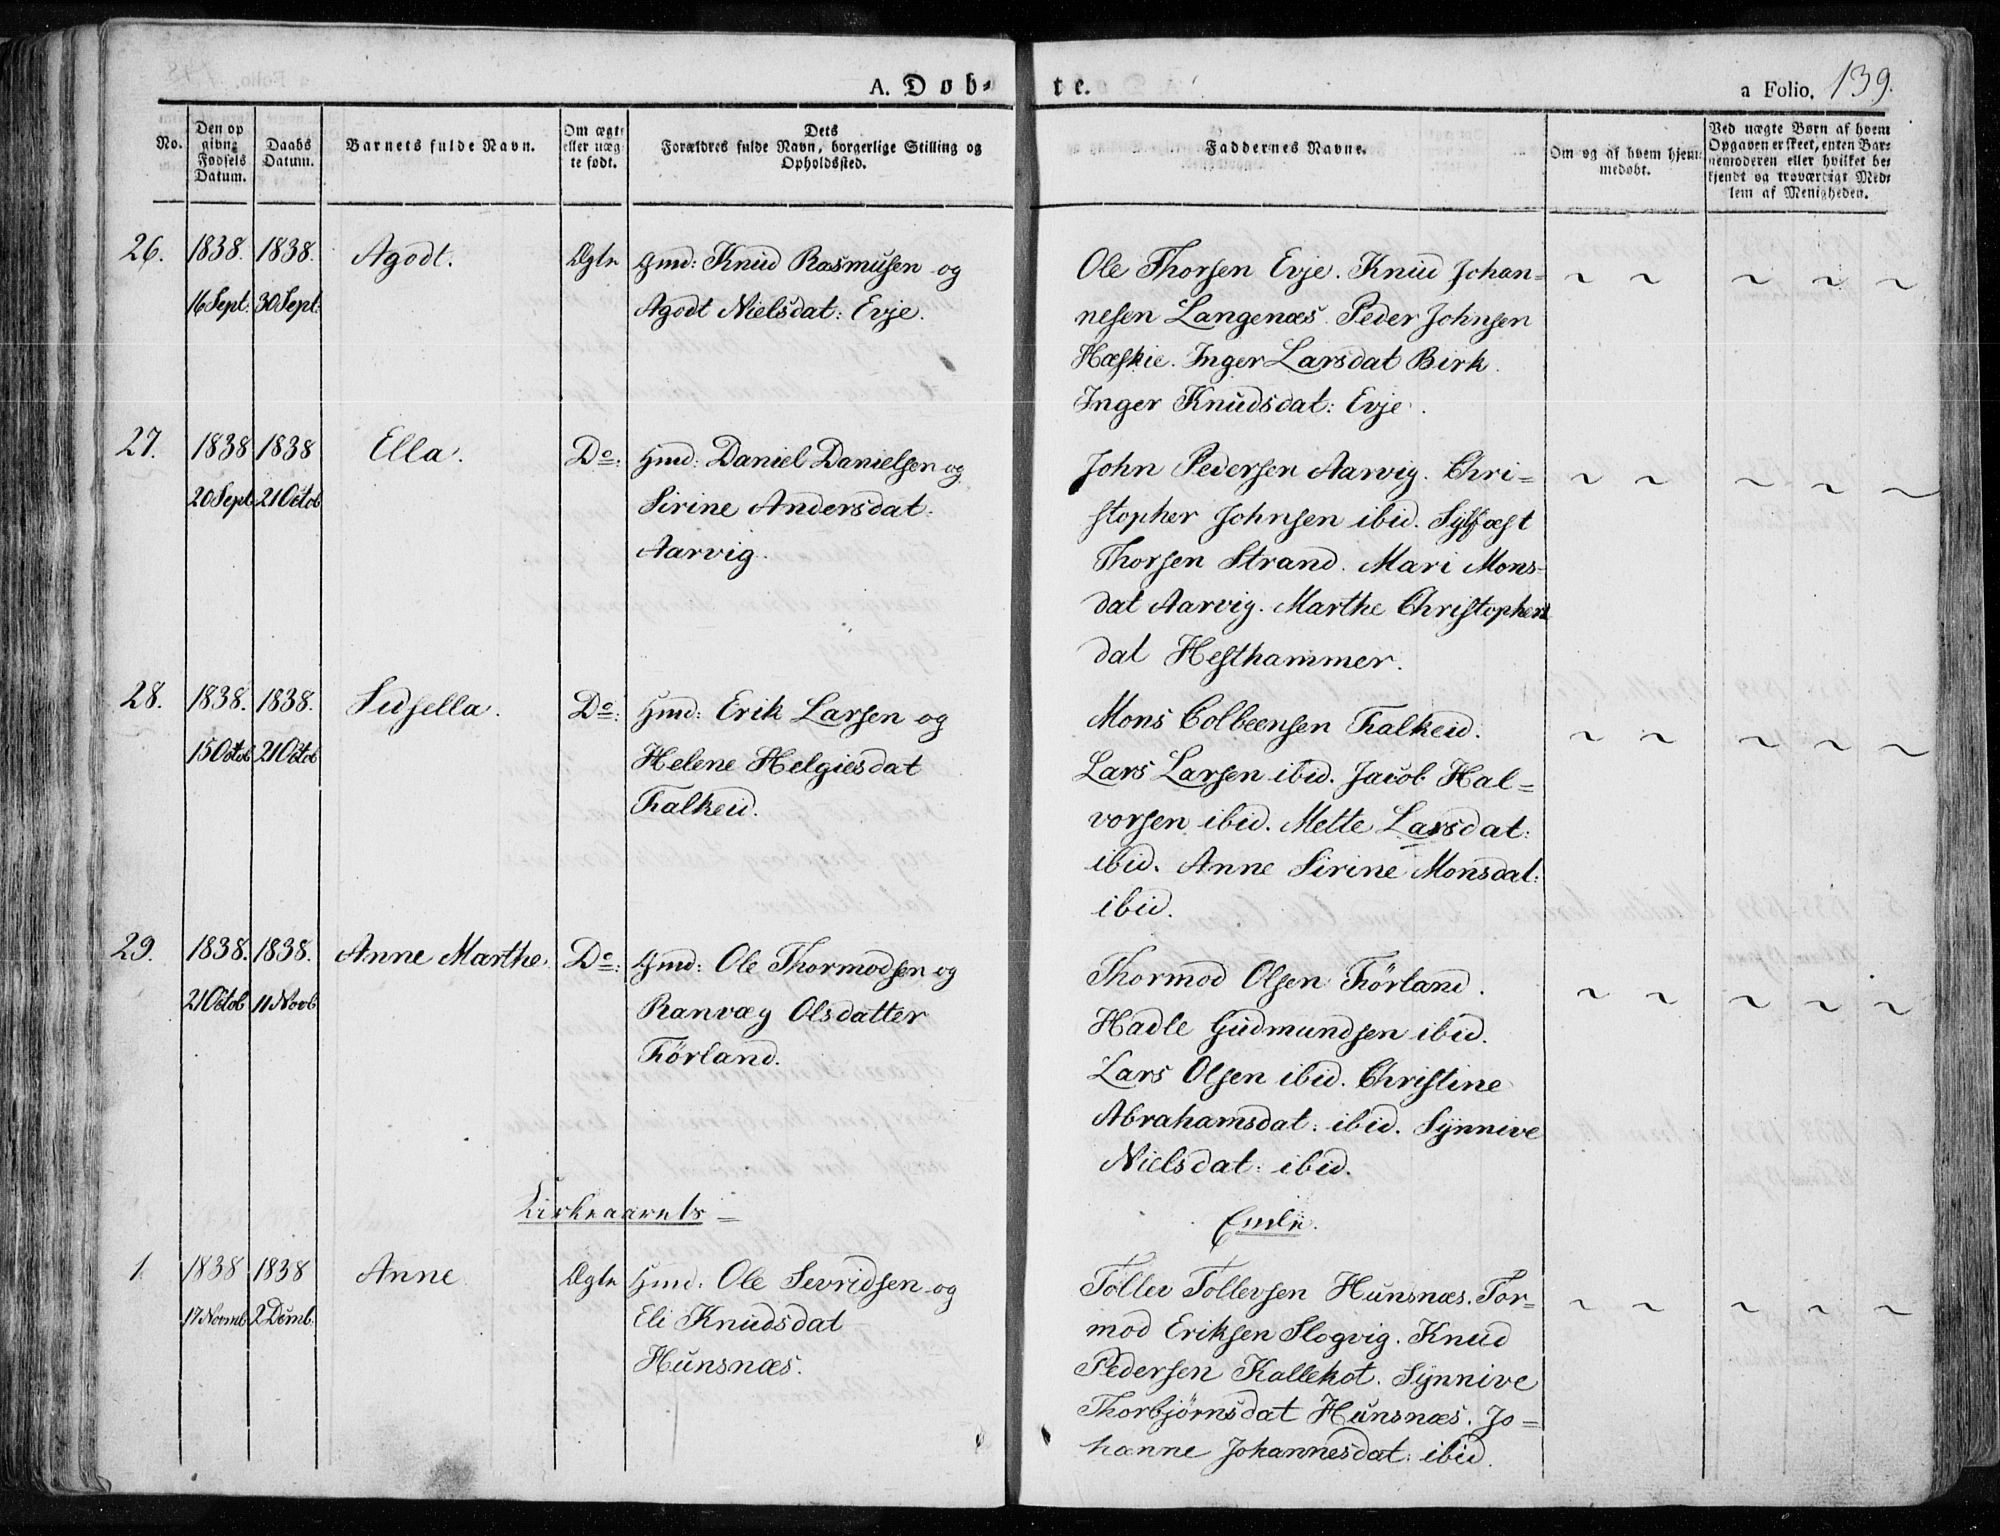 A. Døb-
te.
a Folio. 139.
No.
Den op
givne
Fødsels
Datum.
Daabs
Datum.
Barnets fulde Navn.
Om ægte
eller uæg-
te født.
Dets
Forældres fulde Navn, borgerlige Stilling og
Opholdssted.
Faddernes Navne.
Om og af hvem hjem-
medøbt.
Ved uægte Børn af hvem
Opgaven er skeet, enten Bar-
nemoderen eller hvilket be-
kjendt og troværdigt Med-
lem af Menigheden.
26. 1838. 1838. Agodt. Ægte Gmd: Knud Rasmusen og
16 Sept. 30 Sept: Agodt Nielsdat: Evje.
Ole Thorsen Evje. Knud Johan= ~ ~ ~ ~ ~
nesen Langenæs. Peder Johnsen
Hæskie. Inger Larsdat Birk.
Inger Knudsdat: Evje.
27. 1838 1838 Ella. Do: Gmd: Daniel Danielsen og
20 Sept 21 Octob Sirine Andersdat:
Aarvig.
John Pedersen Aarvig. Chri= ~ ~ ~ ~ ~
stopher Johnsen ibid. Sylfæst
Thorsen Strand. Mari Mons-
dat Aarvig. Marthe Christophers
dat Hesthammer.
28. 1838. 1838. Sidsella. Do: Gmd: Erik Larsen og
15 Octob 21 Octob Helene Helgiesdat
Falkeid.
Mons Colbeensen Falkeid. ~ ~ ~ ~ ~
Lars Larsen ibid. Jacob Hal=
vorsen ibid. Mette Larsdat:
ibid. Anne Sirine Monsdat:
ibid.
29. 1838. 1838. Anne Marthe. Do: Gmd: Ole Thormodsen og
21 Octob 11 Novb Ranvæg Olsdatter
Førland.
Thormod Olsen Førland. ~ ~ ~ ~ ~
Hadle Gudmundsen ibid.
Lars Olsen ibid. Christine
Abrahamsdat: ibid. Synnive
Nielsdat: ibid.
Kirkeaarets =
Ende.
1. 1838 1838 Anne Ægte Gmd: Ole Sevridsen og
17 Novmb 2 Dcmb: Eli Knudsdat
Hunsnæs.
Tollev Tollevsen Hunsnæs. Tor= ~ ~ ~ ~ ~
mod Eriksen Slogvig. Knud
Pedersen Kallekot. Synnive
Thorbjørnsdat Hunsnæs. Jo=
hanne Johannesdat: ibid.